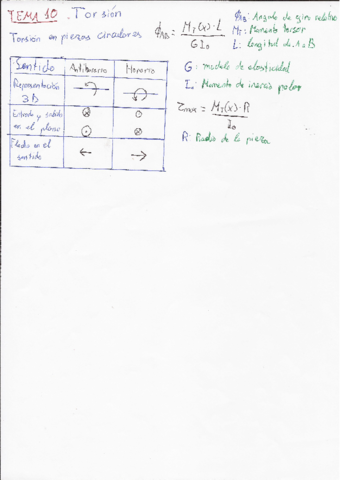 TEMA 10. Torsión
Torsión en piezas circulares
ϕAB = MT(x)·L / G I0
ϕAB: Angulo de giro relativo
MT: Momento torsor
L: longitud de A a B
G: modulo de elasticidad
I0: Momento de inercia polar
τmax = MT(x)·R / I0
R: Radio de la pieza
Sentido Antihorario Horario
Representación 3D
Entrada y salida en el plano
en el sentido